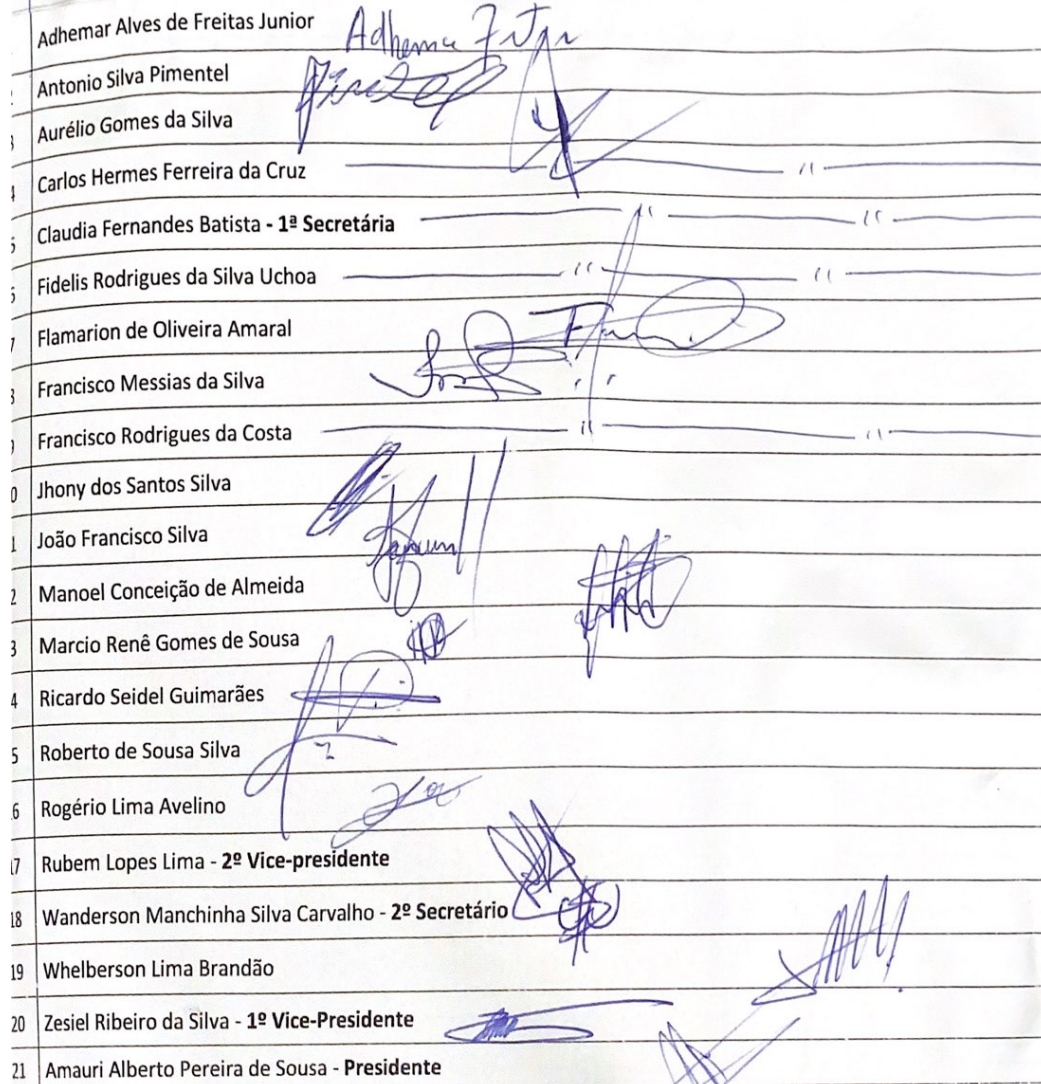 Adhemar Alves de Freitas Junior Adhemar
Antonio Silva Pimentel
3 Aurélio Gomes da Silva
4 Carlos Hermes Ferreira da Cruz — " — " —
5 Claudia Fernandes Batista - 1ª Secretária — " — " —
6 Fidelis Rodrigues da Silva Uchoa — " — " —
7 Flamarion de Oliveira Amaral
8 Francisco Messias da Silva
9 Francisco Rodrigues da Costa — " — " —
0 Jhony dos Santos Silva
1 João Francisco Silva
2 Manoel Conceição de Almeida
3 Marcio Renê Gomes de Sousa
4 Ricardo Seidel Guimarães
5 Roberto de Sousa Silva
6 Rogério Lima Avelino
17 Rubem Lopes Lima - 2º Vice-presidente
18 Wanderson Manchinha Silva Carvalho - 2º Secretário
19 Whelberson Lima Brandão
20 Zesiel Ribeiro da Silva - 1º Vice-Presidente
21 Amauri Alberto Pereira de Sousa - Presidente